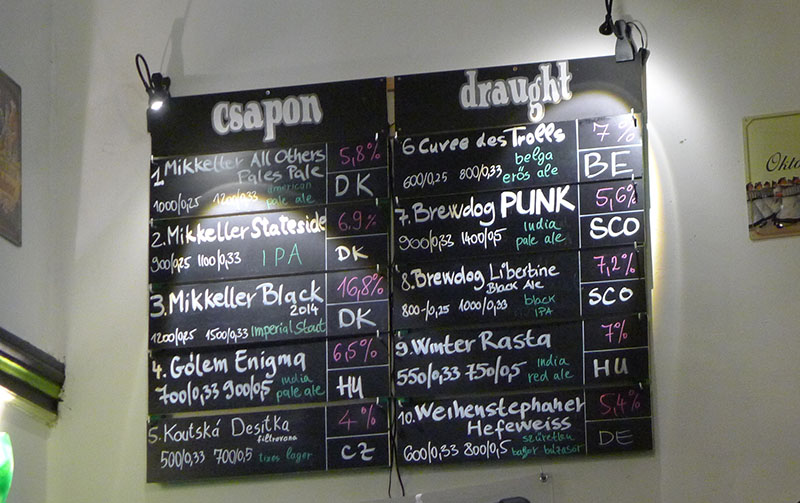 csapon
1 Mikkeller All Others
Pales Pale
5,8%
1000/0,25 1200/0,33 american
pale ale
DK
2. Mikkeller Stateside
6.9%
900/0,25 1100/0,33 IPA
DK
3. Mikkeller Black
2014
16,8%
1200/0,25 1500/0,33 Imperial Stout
DK
4. Gólem Enigma
6,5%
700/0,33 900/0,5 india
pale ale
HU
5. Koutská Desítka
filtrovana
4%
500/0,33 700/0,5 tizes lager
CZ
draught
6 Cuvee des Trolls
7%
600/0,25 800/0,33 belga
erős ale
BE
7. Brewdog PUNK
5,6%
900/0,33 1400/0,5 india
pale ale
SCO
8. Brewdog Libertine
Black Ale
7,2%
800-/0,25 1000/0,33 black
IPA
SCO
9. Winter Rasta
7%
550/0,33 750/0,5 india
red ale
HU
10. Weihenstephaner
Hefeweiss
5,4%
600/0,33 800/0,5 szűretlen
bajor búzasör
DE
Okto